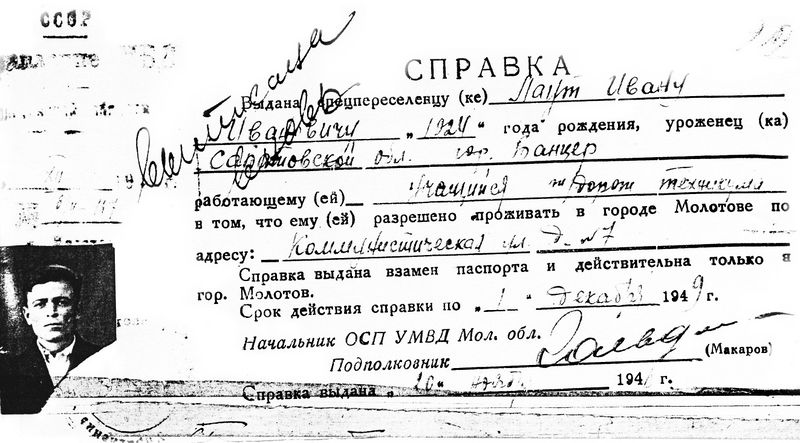 СССР
СПРАВКА
Выдана спецпереселенцу (ке) Лаут Ивану
Ивановичу „1924“ года рождения, уроженец (ка)
Саратовской обл. гор. Банцер
работающему (ей) Учащийся ж дорож техникума
в том, что ему (ей) разрешено проживать в городе Молотове по
адресу: Коммунистическая ул. д. №7
Справка выдана взамен паспорта и действительна только в
гор. Молотов.
Срок действия справки по „1“ декабря 1949 г.
Начальник ОСП УМВД Мол. обл.
Подполковник (Макаров)
Справка выдана „20“ 194 г.